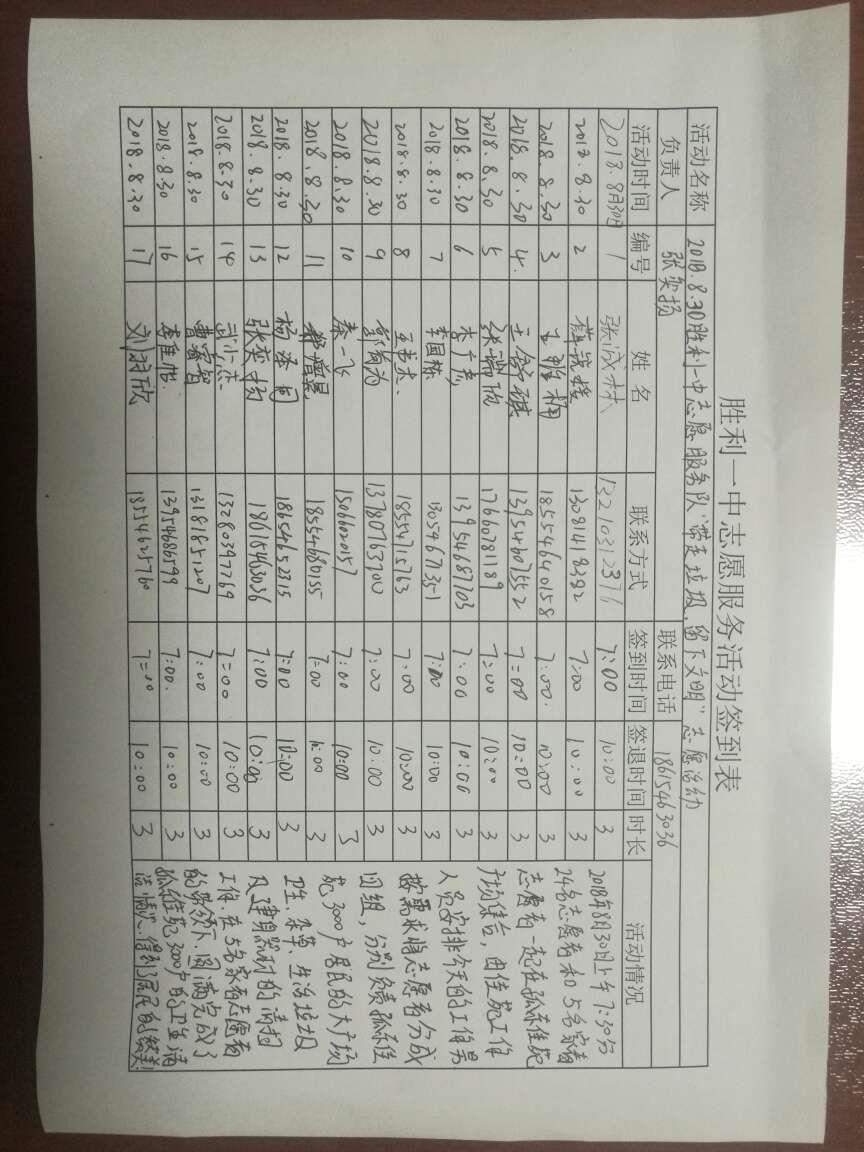 胜利一中志愿服务活动签到表
活动名称 2018.8.30胜利一中志愿服务队"带走垃圾,留下文明"志愿活动
负责人 张奕扬 联系电话 18615463036
活动时间 编号 姓名 联系方式 签到时间 签退时间 时长 活动情况
2018.8月30日 1 张诚林 13210312376 7:00 10:00 3
2018.8.30 2 13081418292 7:00 10:00 3
2018.8.30 3 18554640158 7:00. 10:00 3
2018.8.30 4. 13954607552 7:00 10:00 3
2018.8.30 5 张瑞欣 17660781189 7:00 10:00 3
2018.8.30 6 李广彪 13954687703 7:00 10:00 3
2018.8.30 7 李国栋 13054673351 7:00 10:00 3
2018.8.30 8 18554715763 7:00 10:00 3
2018.8.30 9 13780763700 7:00 10:00 3
2018.8.30 10 秦一飞 15066020157 7:00 10:00 3
2018.8.30 11 18554680155 7:00 3
2018.8.30 12 18654652315 7:00 10:00 3
2018.8.30 13 张奕扬 18615463036 7:00 10:00 3
2018.8.30 14 武小杰 13280397769 7:00 10:00 3
2018.8.30 15 曹睿智 13181851207 7:00 10:00 3
2018.8.30 16 李佳怡 13954686599 7:00. 10:00 3
2018.8.30 17 刘羽欣 18554625760 7:00 10:00 3
2018年8月30日上午7:30分
24名志愿者和5名家者
志愿者一起在孤东佳苑
广场集合,由佳苑工作
人员安排今天的工作另
按需求将志愿者分成
四组,分别负责孤东佳
苑3000户居民的大广场
卫生、杂草、生活垃圾
及健身器材的清扫
工作.在5名家者志愿者
的带领下,圆满完成了
孤东佳苑3000户的卫生清
洁情况,得到了居民的赞美!